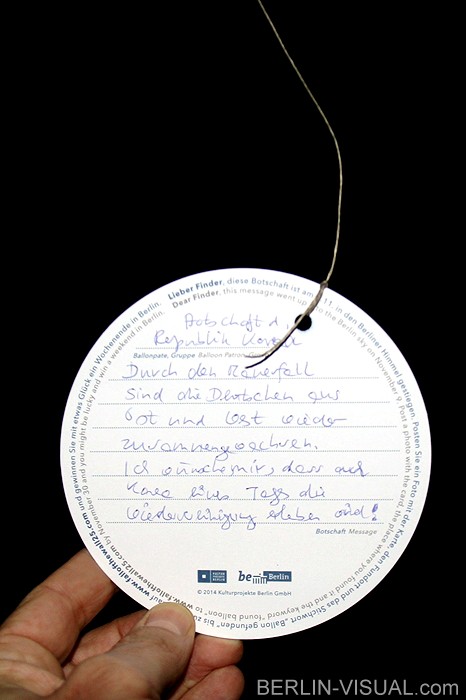 Lieber Finder, diese Botschaft ist am 9.11. in den Berliner Himmel gestiegen. Posten Sie ein Foto mit der Karte, den Fundort und das Stichwort „Ballon gefunden“ bis zum auf www.fallofthewall25.com und gewinnen Sie mit etwas Glück ein Wochenende in Berlin.
Dear Finder, this message went up into the Berlin sky on November 9. Post a photo with the card, the place where you found it and the keyword "found balloon" to www.fallofthewall25.com by November 30 and you might be lucky and win a weekend in Berlin.
Botschaft d.
Republik Korea
Ballonpate, Gruppe Balloon Patron,
Durch den Mauerfall
sind die Deutschen aus
Ost und West wieder
zusammengewachsen.
Ich wünsche mir, dass auch
Korea eines Tags die
Wiedervereinigung erleben wird!
Botschaft Message
be Berlin
© 2014 Kulturprojekte Berlin GmbH
BERLIN-VISUAL.com